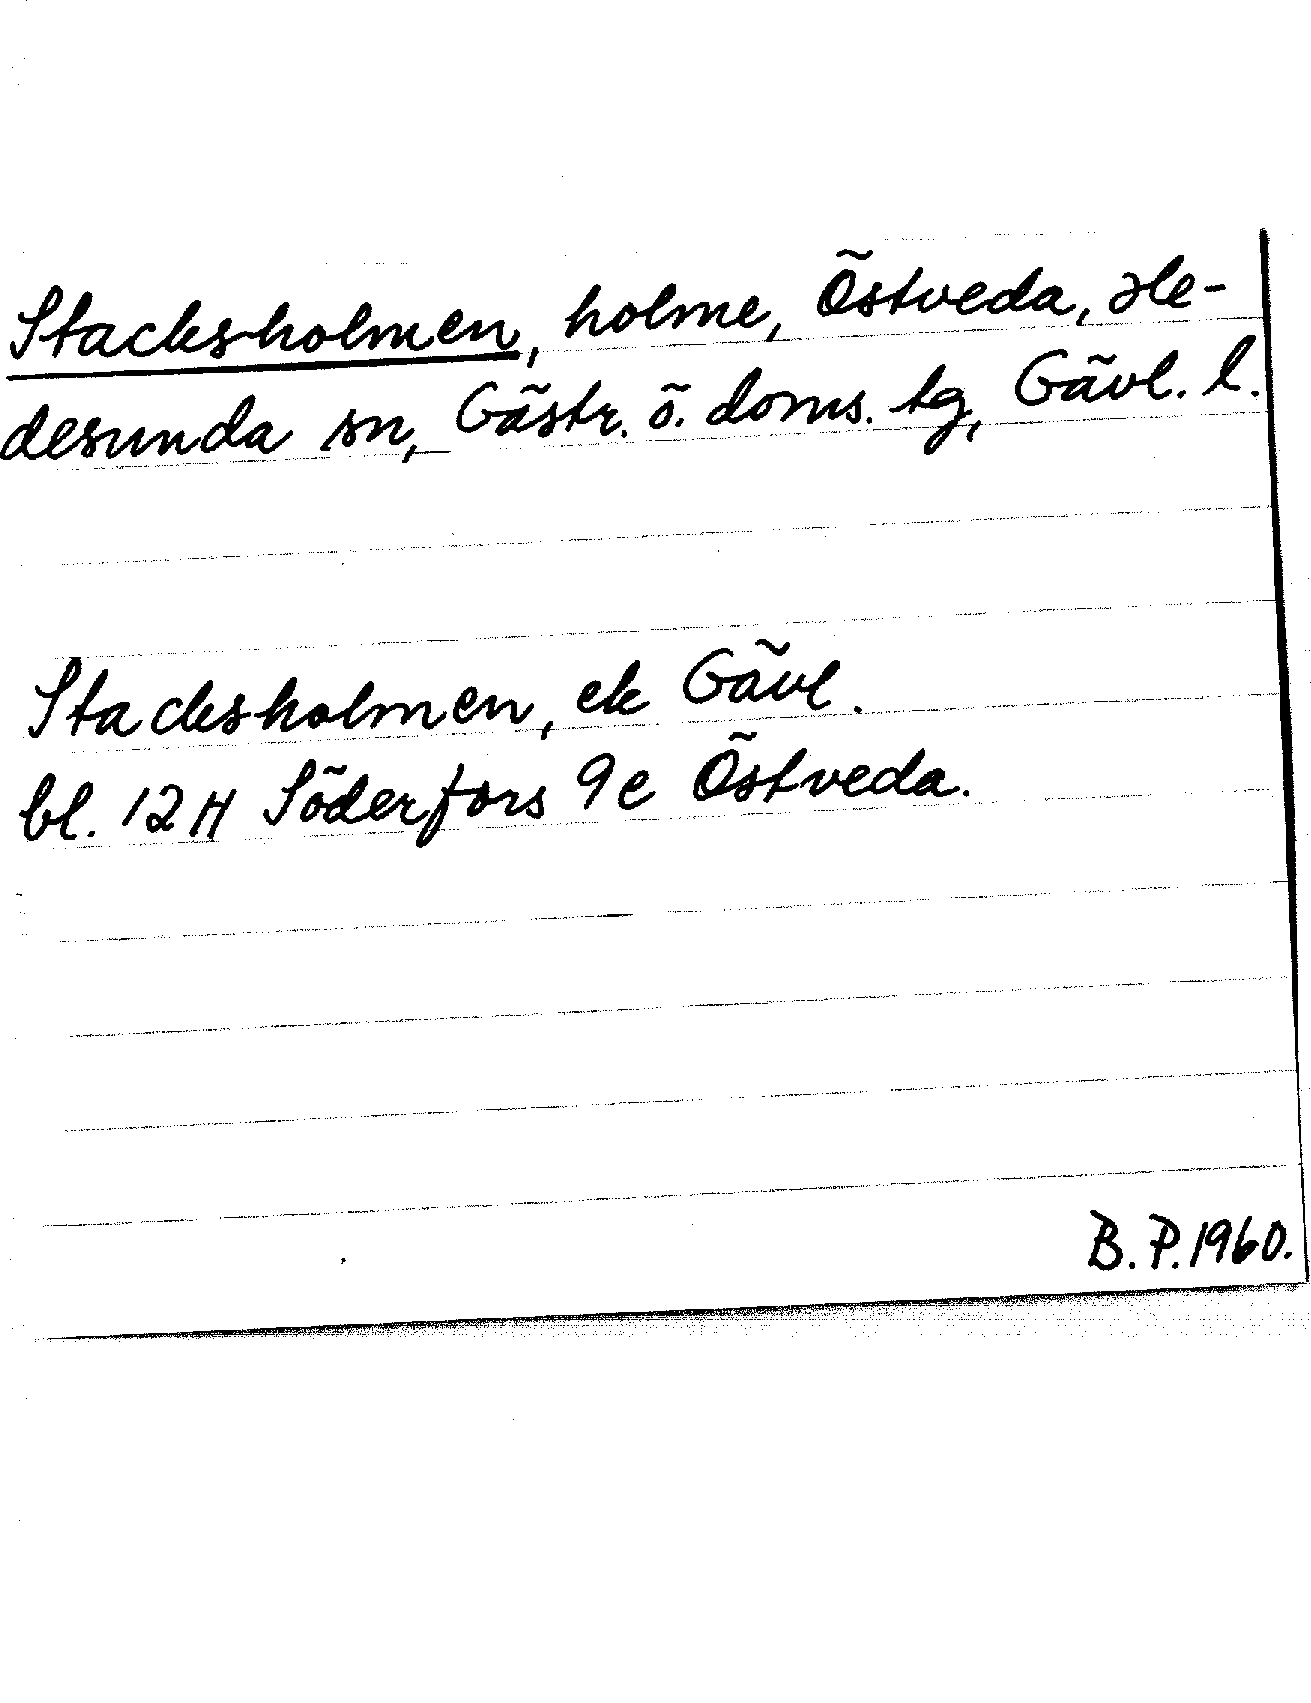 Stacksholmen, holme, Östveda, Hle-
desunda sn, Gästr. ö. doms. tg, Gävl. l.
Stacksholmen, ek Gävl.
bl. 12H Söderfors 9e Östveda.
B.P. 1960.